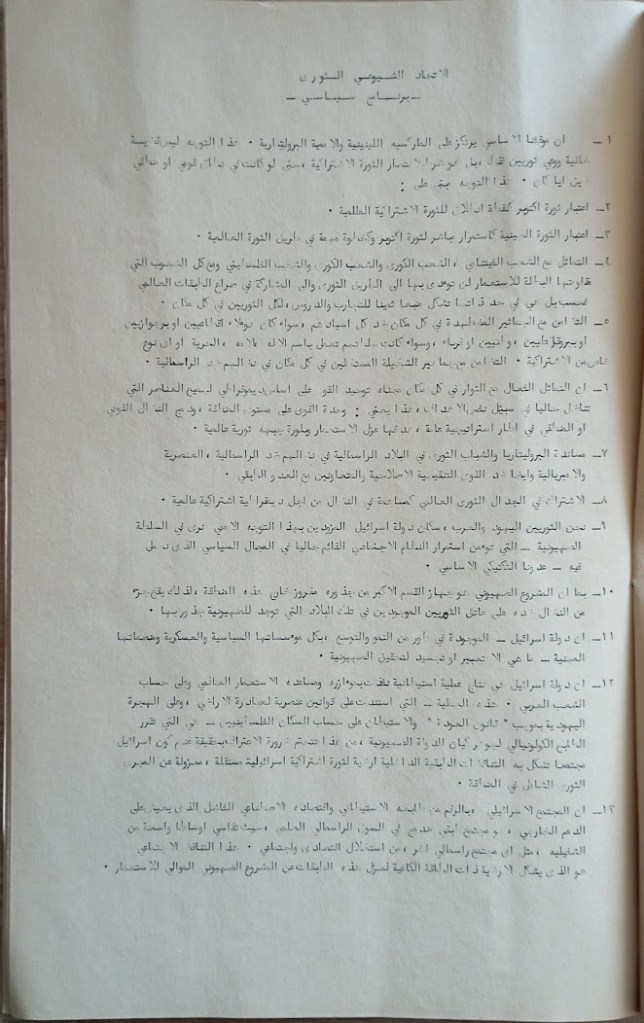 الاتحاد الشيوعي الثوري
– برنامج سياسي –
١ – ان موقفنا الاساسي يرتكز على الماركسية اللينينية والاممية البروليتارية . هذا التوجه ليس قضية
ثوريين فقط ، بل هو لانتصار الثورة الاشتراكية ، حتى لو كانت في نطاق قومي او
كان . هذا التوجه يبنى على :
٢ – اعتبار ثورة اكتوبر كنقطة انطلاق للثورة الاشتراكية العالمية .
٣ – اعتبار الثورة الصينية كاستمرار مباشر لثورة اكتوبر وكخطوة مهمة في طريق الثورة العالمية .
٤ – التماثل مع الشعب الفيتنامي ، الشعب الكوري والشعب الكوبي والشعب الفلسطيني ومع كل الشعوب التي
مقاومتها البطلة للاستعمار لن تؤدي بها الى الطريق الثوري والى المشاركة في صراع الطبقات العالمي
فحسب بل هي في حد ذاتها تشكل للتجارب والدروس ، لكل الثوريين في كل مكان .
٥ – التضامن مع الجماهير المضطهدة في كل مكان ضد كل اسيادهم ، سواء كان هؤلاء اقطاعيين او برجوازيين
او بيروقراطيين ، وطنيين او غرباء ، وسواء كانت سلطتهم تعمل باسم الاله ، الحرية او اي نوع
خاص من الاشتراكية . التضامن مع جماهير الشغيلة المستغلين في كل مكان في نضالهم ضد الراسمالية .
٦ – ان التماثل الفعال مع الثوار في كل مكان معناه توحيد القوى على اساس ديموقراطي لجميع العناصر التي
تناضل حاليا في سبيل نفس الاهداف ، هذا يعني : وحدة القوى على مستوى المنطقة ، ودمج النضال القومي
او المناطقي في اطار استراتيجية عامة ، هدفها عزل الاستعمار وبلورة جبهة ثورية عالمية .
٧ – مساندة البروليتاريا والشباب الثوري في البلاد الراسمالية في نضالهم ضد الراسمالية ، العنصرية
والامبريالية وايضا ضد القوى التنقيحية الاصلاحية والمتعاونين مع العدو الطبقي .
٨ – الاشتراك في الجدال الثوري العالمي كمساهمة في النضال من اجل ديمقراطية اشتراكية عالمية .
٩ – نحن الثوريين اليهود والعرب ، سكان دولة اسرائيل المزودين بهذا التوجه الاممي نرى في السلطة
الصهيونية – التي تؤمن استمرار النظام الاجتماعي القائم حاليا في المجال السياسي الذي نعمل
فيه – عدونا التكتيكي الاساسي .
١٠ – بما ان المشروع الصهيوني هو جهاز القسم الاكبر من جذوره مغروز خارج هذه المنطقة ، لذلك يقع جزء
من النضال ضده على عاتق الثوريين الموجودين في تلك البلاد التي توجد للصهيونية جذور بها .
١١ – ان دولة اسرائيل – الموجودة في طور من النمو والتوسع ، بكل مؤسساتها السياسية والعسكرية ومنظماتها
المهنية – ما هي الا تعبير او تجسيد لتحقيق الصهيونية .
١٢ – ان دولة اسرائيل هي نتاج عملية استيطانية نفذت بمؤازرة ومساعدة الاستعمار العالمي وعلى حساب
الشعب العربي . هذه العملية – التي استندت على قوانين عنصرية لمصادرة الاراضي ، وعلى الهجرة
اليهودية بموجب " قانون العودة " والاستيطان على حساب السكان الفلسطينيين – هي التي تقرر
الطابع الكولونيالي لجوهر كيان الدولة الصهيونية ، من هذا تتحتم ضرورة الاعتراف بحقيقة عدم كون اسرائيل
مجتمعا تشكل به التناقضات الطبقية الداخلية ارضية لثورة اشتراكية اسرائيلية مستقلة ، معزولة عن المجرى
الثوري الشامل في المنطقة .
١٣ – ان المجتمع الاسرائيلي ، بالرغم من الاستيطاني واقتصاده الاصطناعي الفاشل الذي يعيش على
الدعم الخارجي ، هو مجتمع طبقي مندمج في السوق الراسمالي العالمي ، حيث تقاسي اوساط واسعة من
الشغيلة ، مثل اي مجتمع راسمالي اخر ، من استغلال اقتصادي واجتماعي . هذا التناقض الاجتماعي
هو الذي يشكل الارضية ذات الطاقة الكافية لعزل هذه الطبقات عن المشروع الصهيوني الموالي للاستعمار .